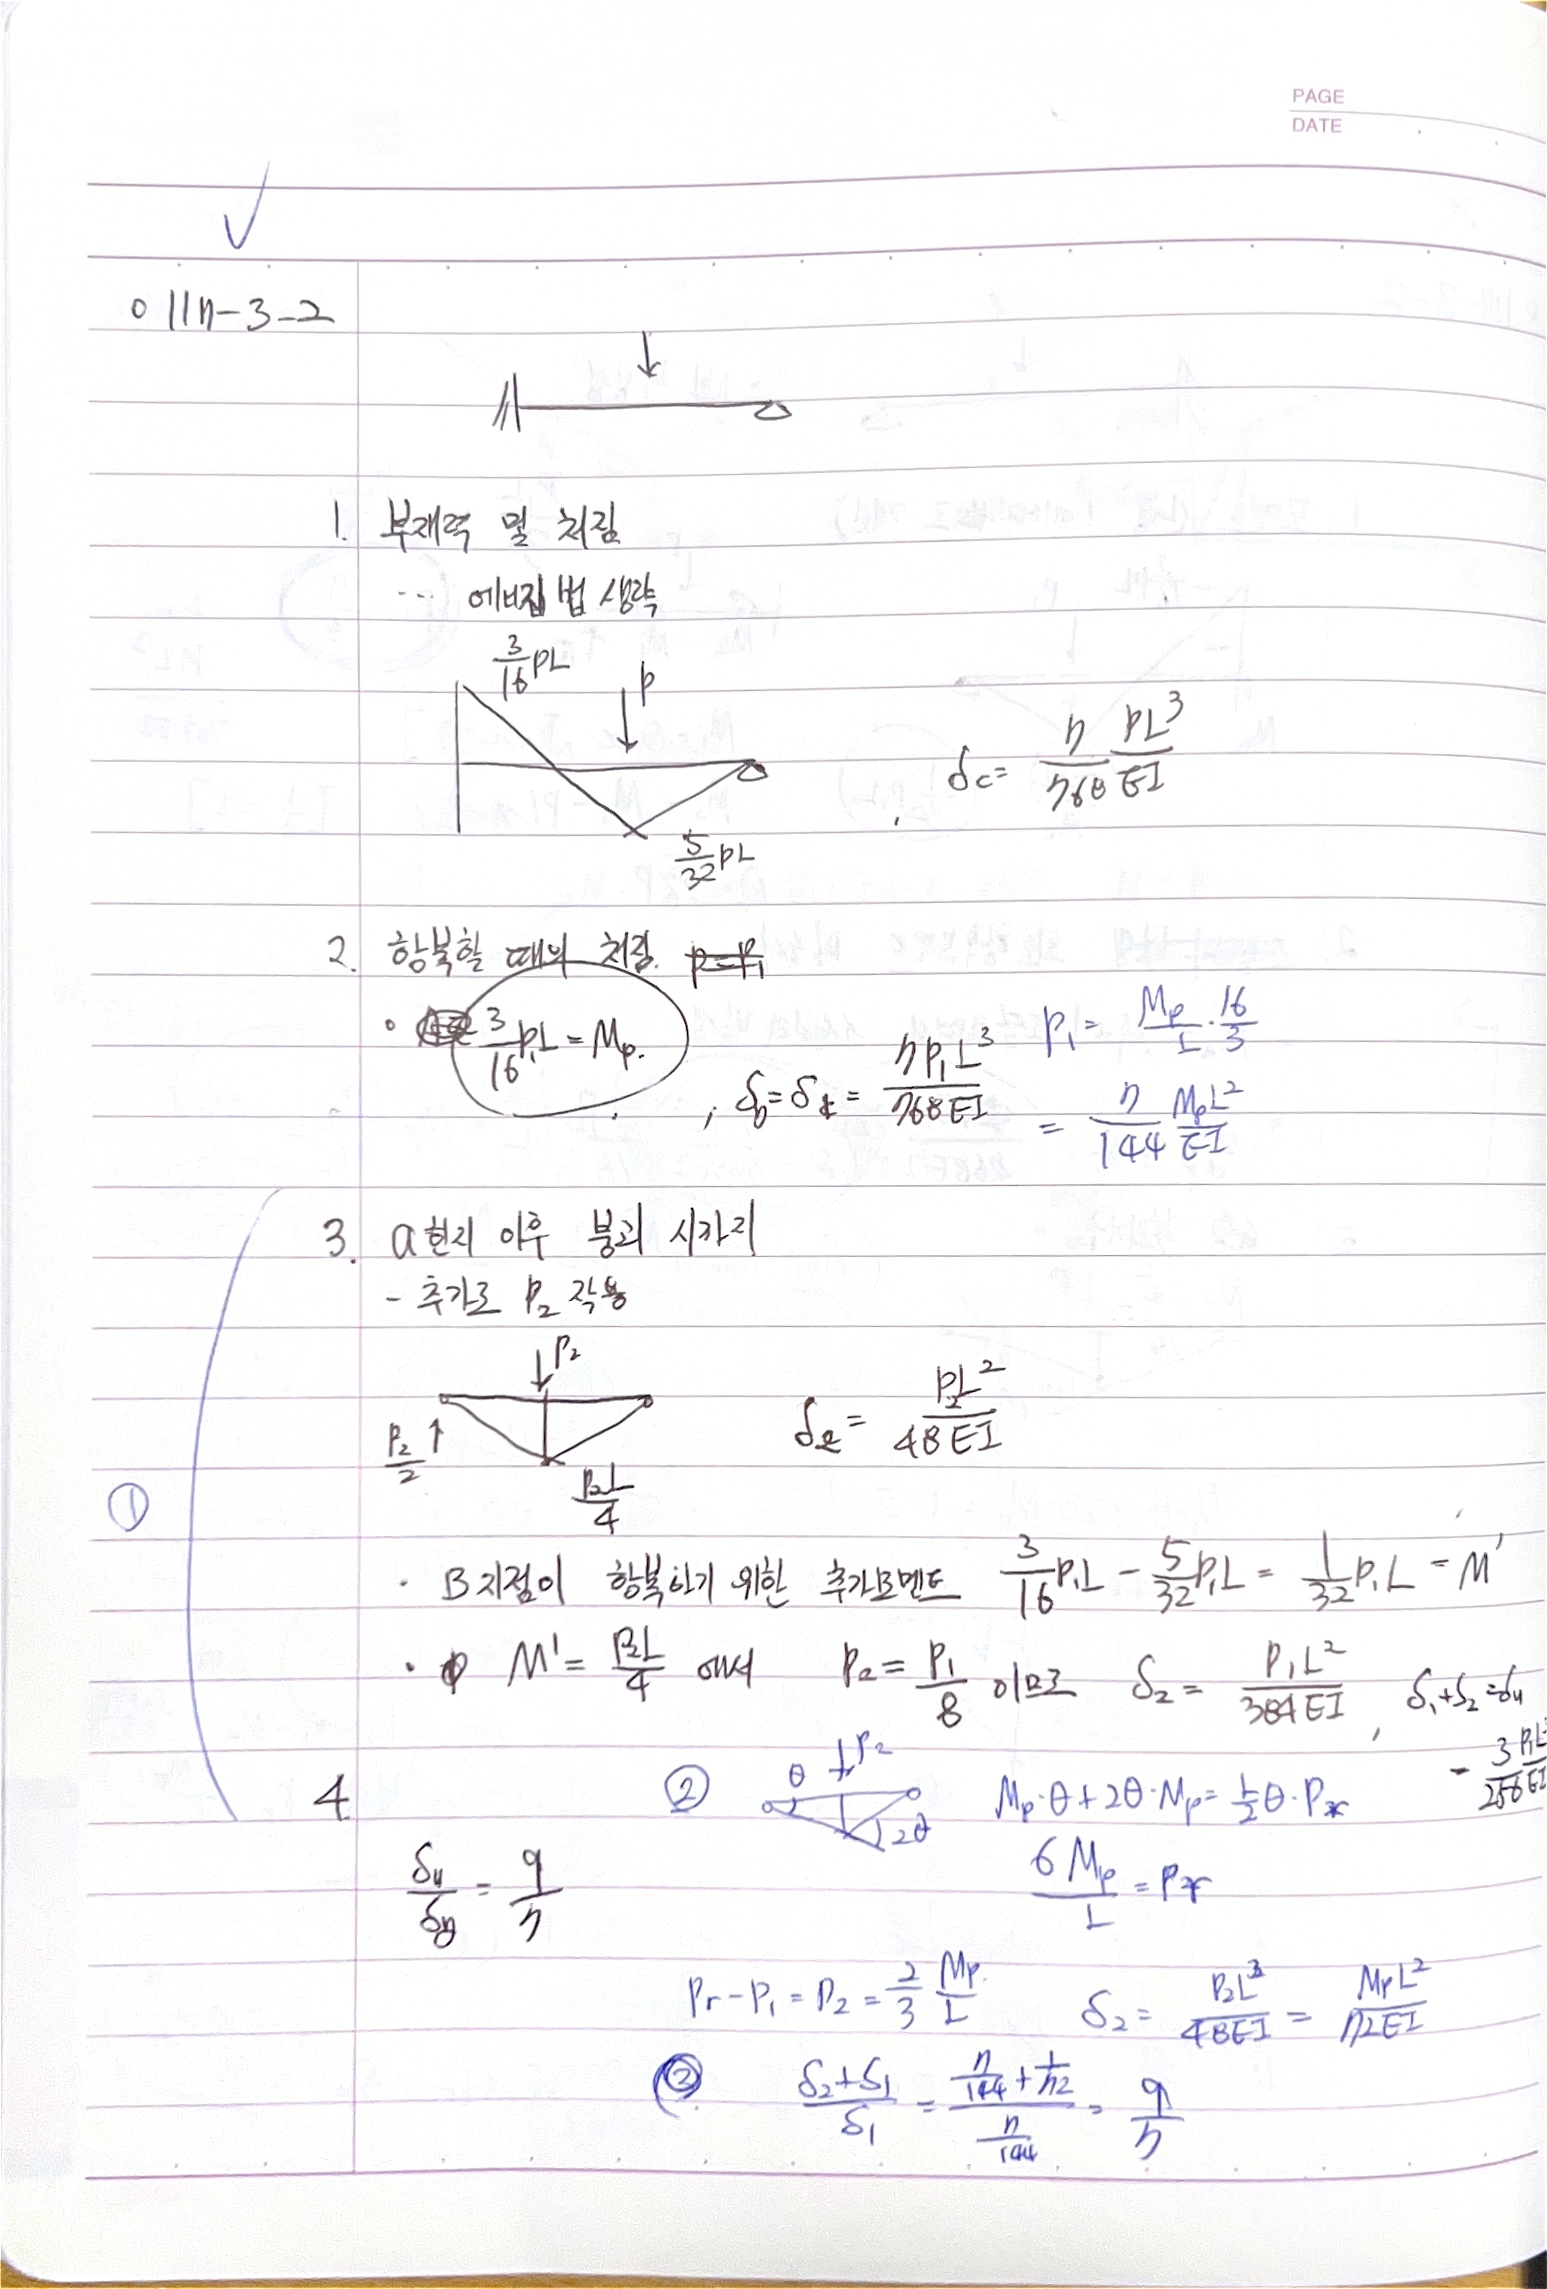 PAGE
DATE
○ 117-3-2
1. 부재력 및 처짐
... 에너지법 생략
3/16 PL
P
δc = 7/768 PL³/EI
5/32 PL
2. 항복할 때의 처짐.
• 3/16 P₁L = Mp. , δy = δ₁ = 7P₁L³/768EI
P₁ = Mp/L · 16/3
= 7/144 MpL²/EI
3. a힌지 이후 붕괴 시까지
- 추가로 P₂ 작용
P₂
P₂/2 ↑
P₂L/4
δ₂ = P₂L²/48EI
①
· B지점이 항복하기 위한 추가모멘트 3/16 P₁L - 5/32 P₁L = 1/32 P₁L = M'
· M' = P₂L/4 에서 P₂ = P₁/8 이므로 δ₂ = P₁L²/384EI , δ₁+δ₂ = δu
= 3/256 P₁L³/EI
4
δu/δy = 9/7
② θ P₂ 2θ Mp·θ + 2θ·Mp = L/2 θ · Pr
6Mp/L = Pr
Pr - P₁ = P₂ = 2/3 Mp/L δ₂ = P₂L³/48EI = MpL²/72EI
③ (δ₂+δ₁)/δ₁ = (7/144 + 1/72)/(7/144) = 9/7